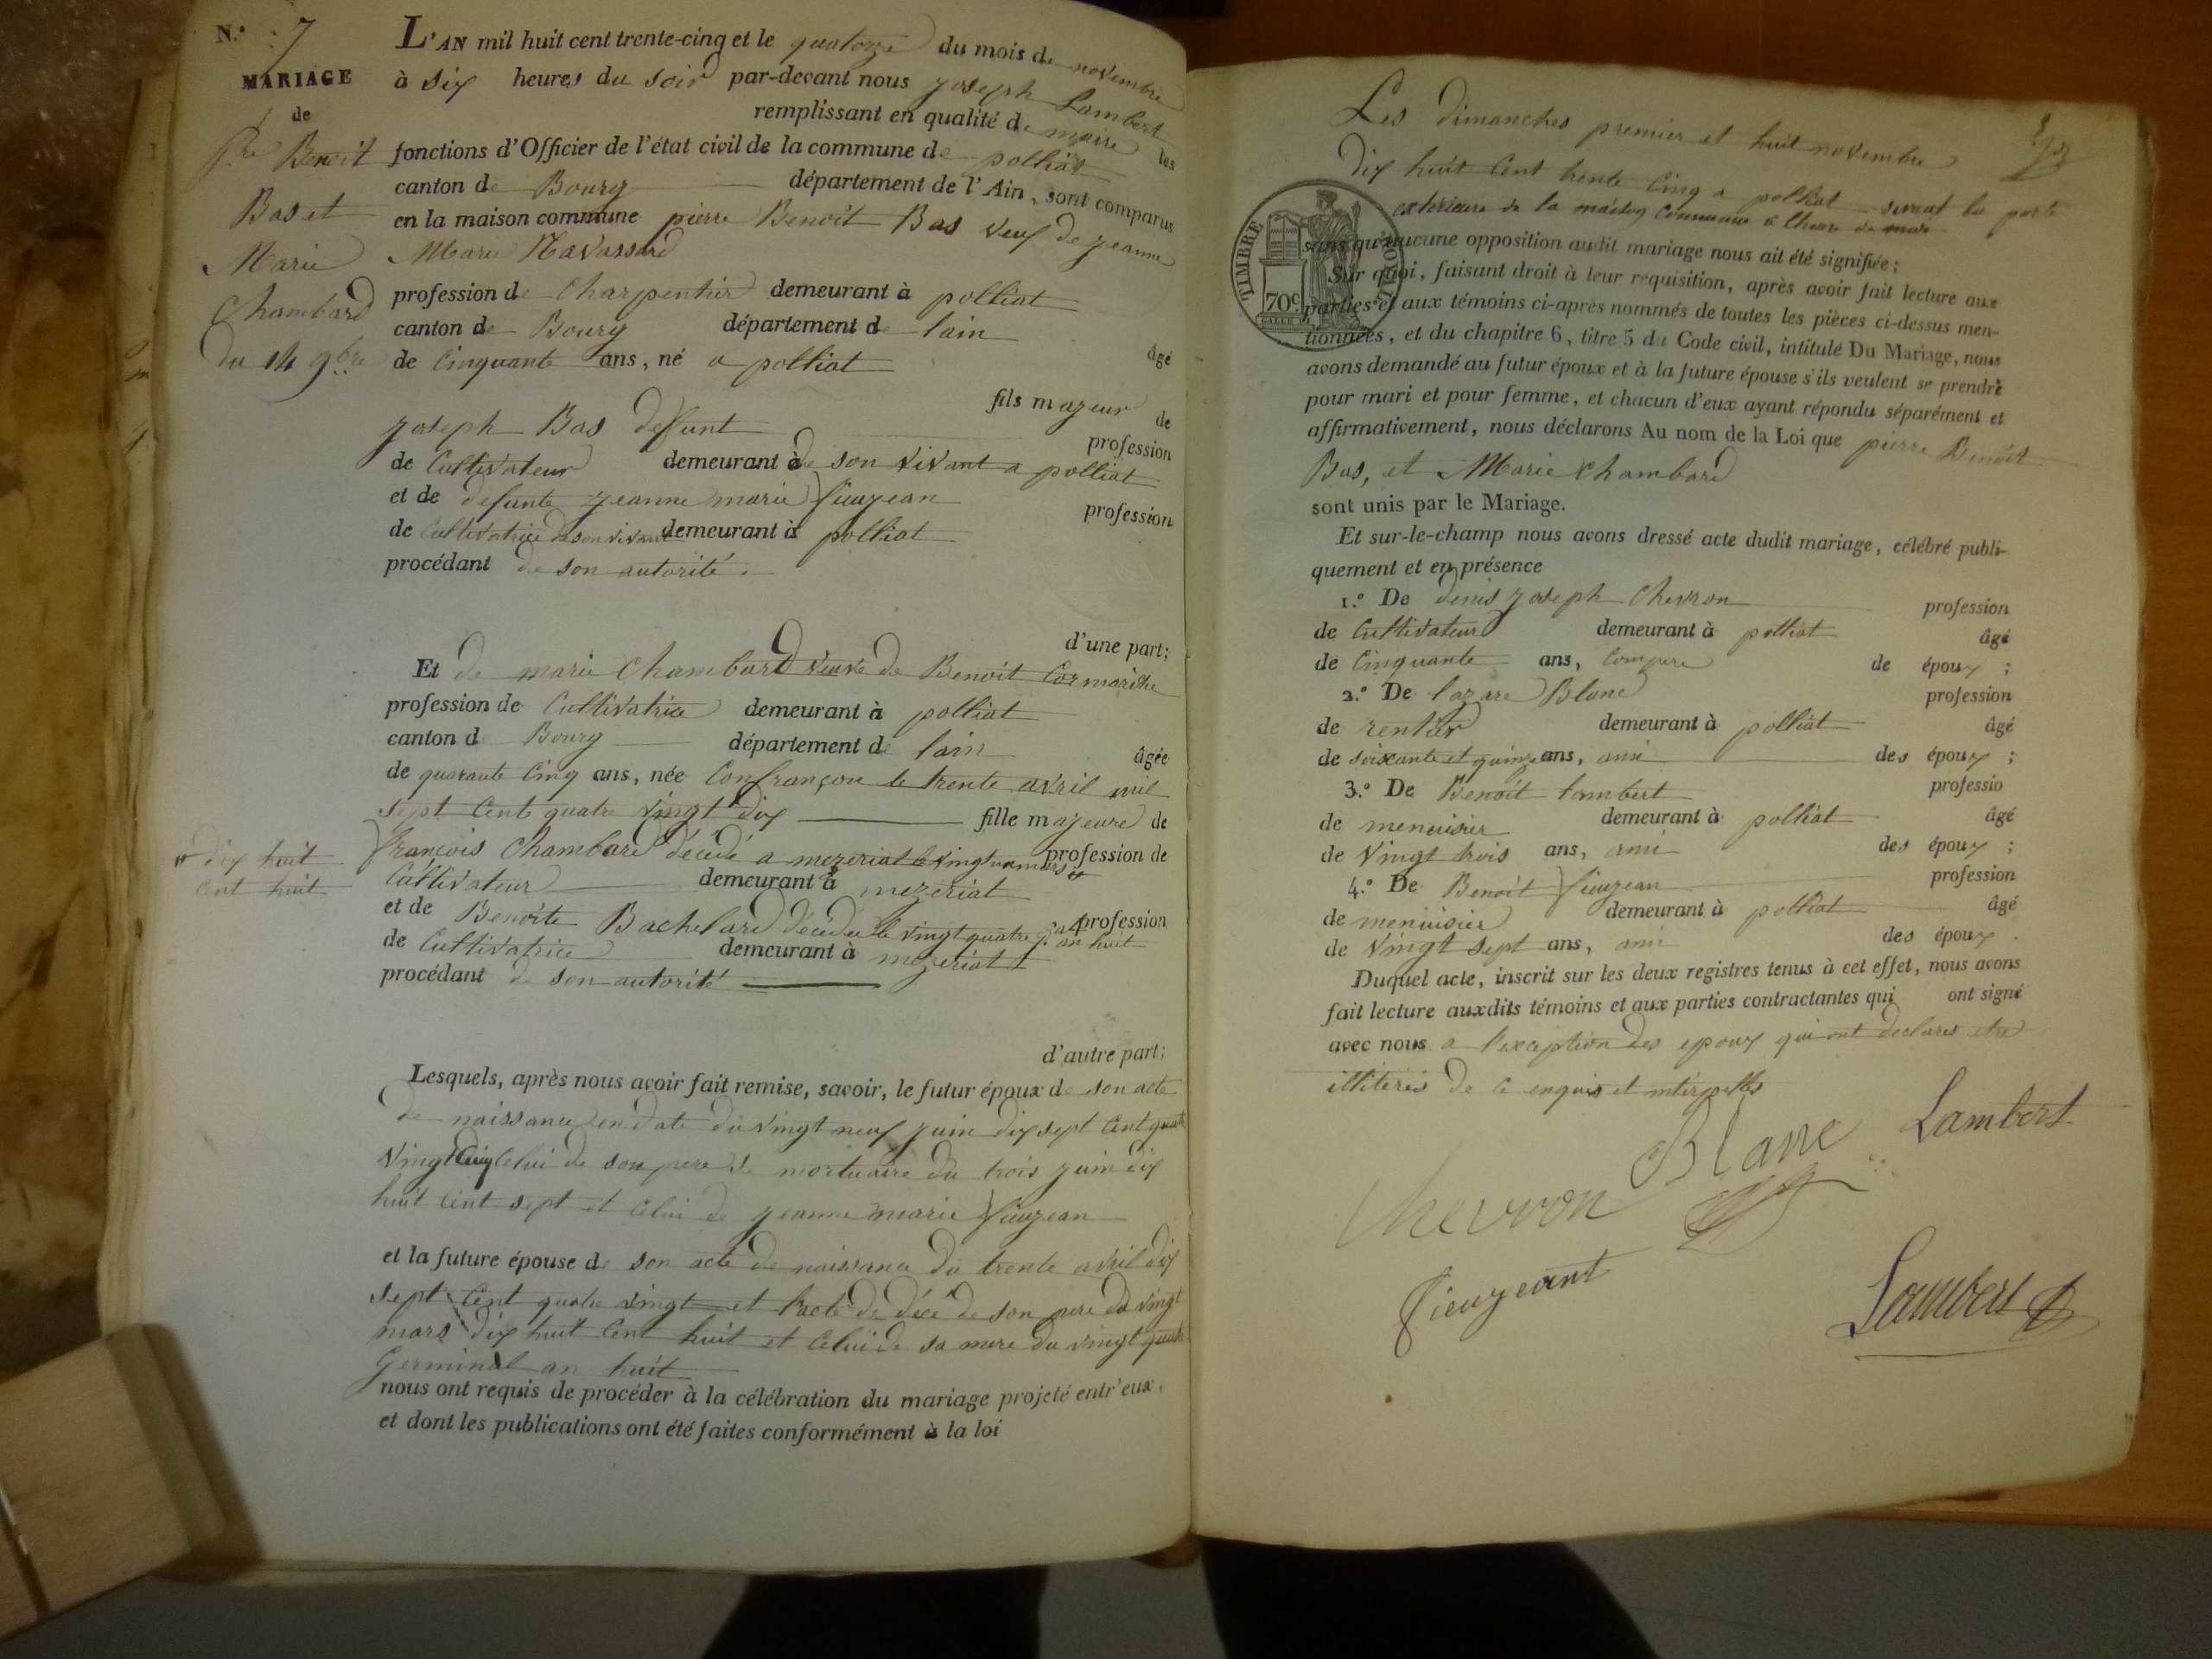 N.° 7
MARIAGE
de
p.re Benoit
Bas et
Marie
Chambard
du 14 9bre
L'AN mil huit cent trente-cinq et le quatorze du mois de novembre
à six heures du soir par-devant nous joseph Lambert
remplissant en qualité de maire les
fonctions d'Officier de l'état civil de la commune de polliat
canton de Bourg département de l'Ain, sont comparus
en la maison commune pierre Benoit Bas veuf de jeanne
Marie Navassard
profession de Charpentier demeurant à polliat
canton de Bourg département de lain
âgé
de Cinquante ans, né a polliat
fils majeur de
joseph Bas defunt profession
de Cultivateur demeurant à de son vivant a polliat
et de defunte jeanne marie fieujean profession
de Cultivatrice de son vivant demeurant à polliat
procédant de son autorité.
d'une part;
Et de marie Chambard veuve de Benoit Cormarèche
profession de Cultivatrice demeurant à polliat
canton d Bourg département de lain âgée
de quarante Cinq ans, née Confrançon le trente avril mil
sept Cent quatre vingt dix fille majeure de
françois Chambard décédé a mezeriat le vingt mars profession de
dix huit
cent huit
Cultivateur demeurant à mezeriat
et de Benoite Bachelard décédée le vingt quatre gal an huit profession
de Cultivatrice demeurant à mezeriat
procédant de son autorité
d'autre part;
Lesquels, après nous avoir fait remise, savoir, le futur époux de son acte
de naissance en date du vingt neuf juin dix sept Cent quatre
vingt Cinq Celui de son pere de mortuaire du trois juin dix
huit Cent sept et Celui de jeanne marie fieujean
et la future épouse de son acte de naissance du trente avril dix
sept Cent quatre vingt et l'acte de décé de son pere du vingt
mars dix huit Cent huit et Celui de sa mere du vingt quatre
Germinal an huit
nous ont requis de procéder à la célébration du mariage projeté entr'eux,
et dont les publications ont été faites conformément à la loi
Les dimanches premier et huit novembre
dix huit Cent trente Cinq a polliat devant la porte
exterieure de la maison Commune a lheure de
TIMBRE ROYAL
70c.
sans qu'aucune opposition audit mariage nous ait été signifiée;
Sur quoi, faisant droit à leur requisition, après avoir fait lecture aux
parties et aux témoins ci-après nommés de toutes les pièces ci-dessus men-
tionnées, et du chapitre 6, titre 5 du Code civil, intitulé Du Mariage, nous
avons demandé au futur époux et à la future épouse s'ils veulent se prendre
pour mari et pour femme, et chacun d'eux ayant répondu séparément et
affirmativement, nous déclarons Au nom de la Loi que pierre Benoit
Bas, et Marie Chambard
sont unis par le Mariage.
Et sur-le-champ nous avons dressé acte dudit mariage, célébré publi-
quement et en présence
1.° De denis joseph Chevron profession
de Cultivateur demeurant à polliat âgé
de Cinquante ans, Compere de époux;
2.° De lazare Blanc profession
de rentier demeurant à polliat âgé
de soixante et quinze ans, ami des époux;
3.° De Benoit lambert professio
de menuisier demeurant à polliat âgé
de vingt trois ans, ami des époux;
4.° De Benoit fieujean profession
de menuisier demeurant à polliat âgé
de vingt sept ans, ami des époux.
Duquel acte, inscrit sur les deux registres tenus à cet effet, nous avons
fait lecture auxdits témoins et aux parties contractantes qui ont signé
avec nous a l'exception des epoux qui ont declarés etre
illiterés de ce enquis et interpellés
Blanc Lambert
Chevron
fieujeant
Lambert